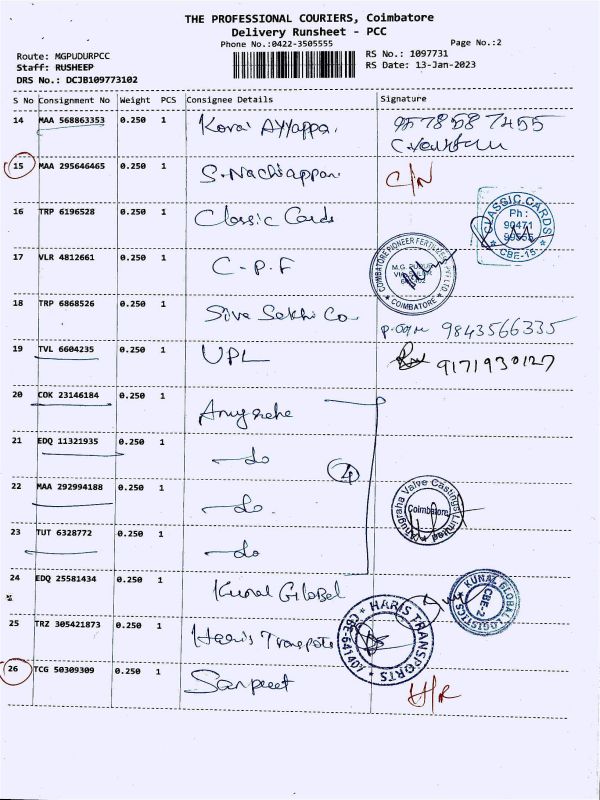 THE PROFESSIONAL COURIERS, Coimbatore
Delivery Runsheet - PCC
Phone No.:0422-3505555
Page No.:2
Route: MGPUDURPCC
Staff: RUSHEEP
DRS No.: DCJB109773102
RS No.: 1097731
RS Date: 13-Jan-2023
S No Consignment No Weight PCS Consignee Details Signature
14 MAA 568863353 0.250 1 Kovai Ayyappa.
15 MAA 295646465 0.250 1 S. Nachiappan C/N
16 TRP 6196528 0.250 1 Classic Cards
CLASSIC CARDS
Ph :
90471
CBE-15
17 VLR 4812661 0.250 1 C-P.F
COIMBATORE PIONEER FERTILIZERS
M.G. PUDUR
COIMBATORE
18 TRP 6868526 0.250 1 Siva Sakthi Co 9843566335
19 TVL 6604235 0.250 1 UPL 9171930127
20 COK 23146184 0.250 1 Anugraha
21 EDQ 11321935 0.250 1 -do
4
22 MAA 292994188 0.250 1 -do.
Anugraha Valve Castings Limited
Coimbatore
23 TUT 6328772 0.250 1 -do
24 EDQ 25581434 0.250 1 Kunal Global
KUNAL GLOBAL LOGISTICS
CBE-2
25 TRZ 305421873 0.250 1 Haris Transports
HARIS TRANSPORTS
CBE-641407
26 TCG 50309309 0.250 1 Sanpreet